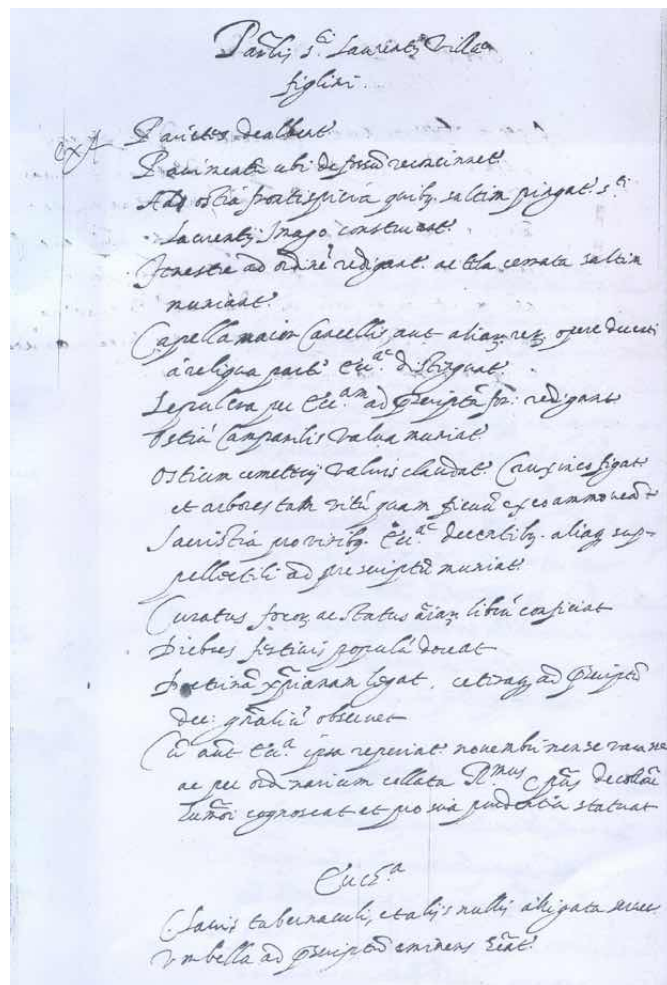 Par̃lis s.ti Laurentij Villæ
figlini.
exã Parietes dealbent.r
Pavimentũ ubi defossũ reconcinnet.r
Ad ostia frontispicia quibq saltim pingat.r s.ti
Laurentij Imago construant.r
Fenestre ad ordinẽ redigant.r ac tela cerata saltim
muniant.r
Capella maior Cancellis aut aliaq opere ducti
à reliqua parte Ecc.æ distinguat.r
Sepulcra per Ecc.am ad p̃scriptã redigant.r
Ostiũ Campanilis valva muniat.r
Ostium cemeterij valvis claudat.r Crux in eo figat.r
et arbores tam vitũ quam ficuũ ex eo ammoveant.r
Sacristia pro viribq Ecc.æ decentibq aliaq sup-
pellectili ad prescriptũ muniat.r
Curatus ac status ãiaq librũ conficiat
Diebus festivis populũ doceat
Doctrinã xp̃ianam legat, ceteraq ad p̃scriptũ
dec: gñaliũ observet
Cũ aut Ecc.a ipsa reperiat.r novembri mense
ac per ordinarium collata R.mus
cognoscat et pro sua prudentia statuat
Clavis tabernaculi, et alijs nullis alligata
Umbella ad p̃scriptũ eminens